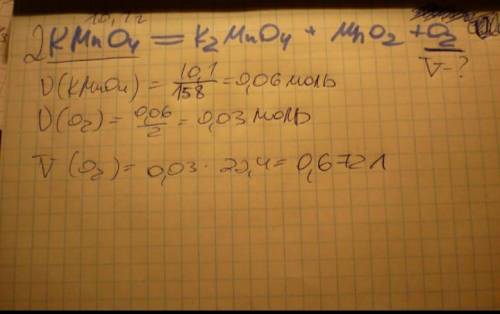 10,1г
2KMnO4 = K2MnO4 + MnO2 + O2
V-?
υ(KMnO4) = 10,1/158 = 0,06 моль
υ(O2) = 0,06/2 = 0,03 моль
V(O2) = 0,03 · 22,4 = 0,672 л